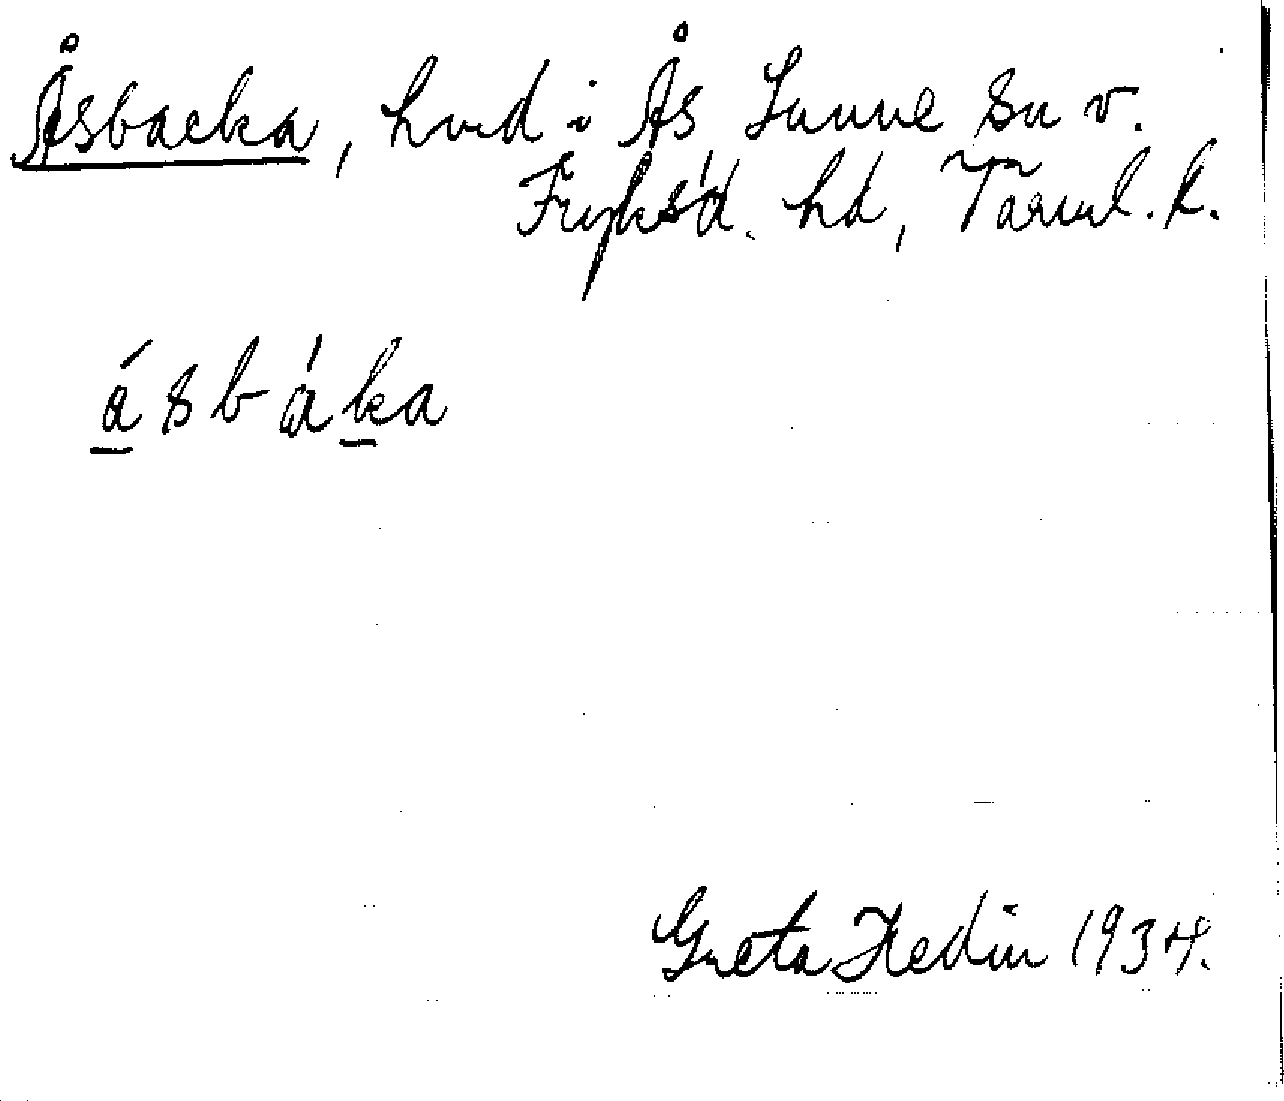 Åsbacka, hvd i Ås Sunne sn v.
Fryksd. hd, Värml. l.
åsbàka
Greta Hedin 1934.